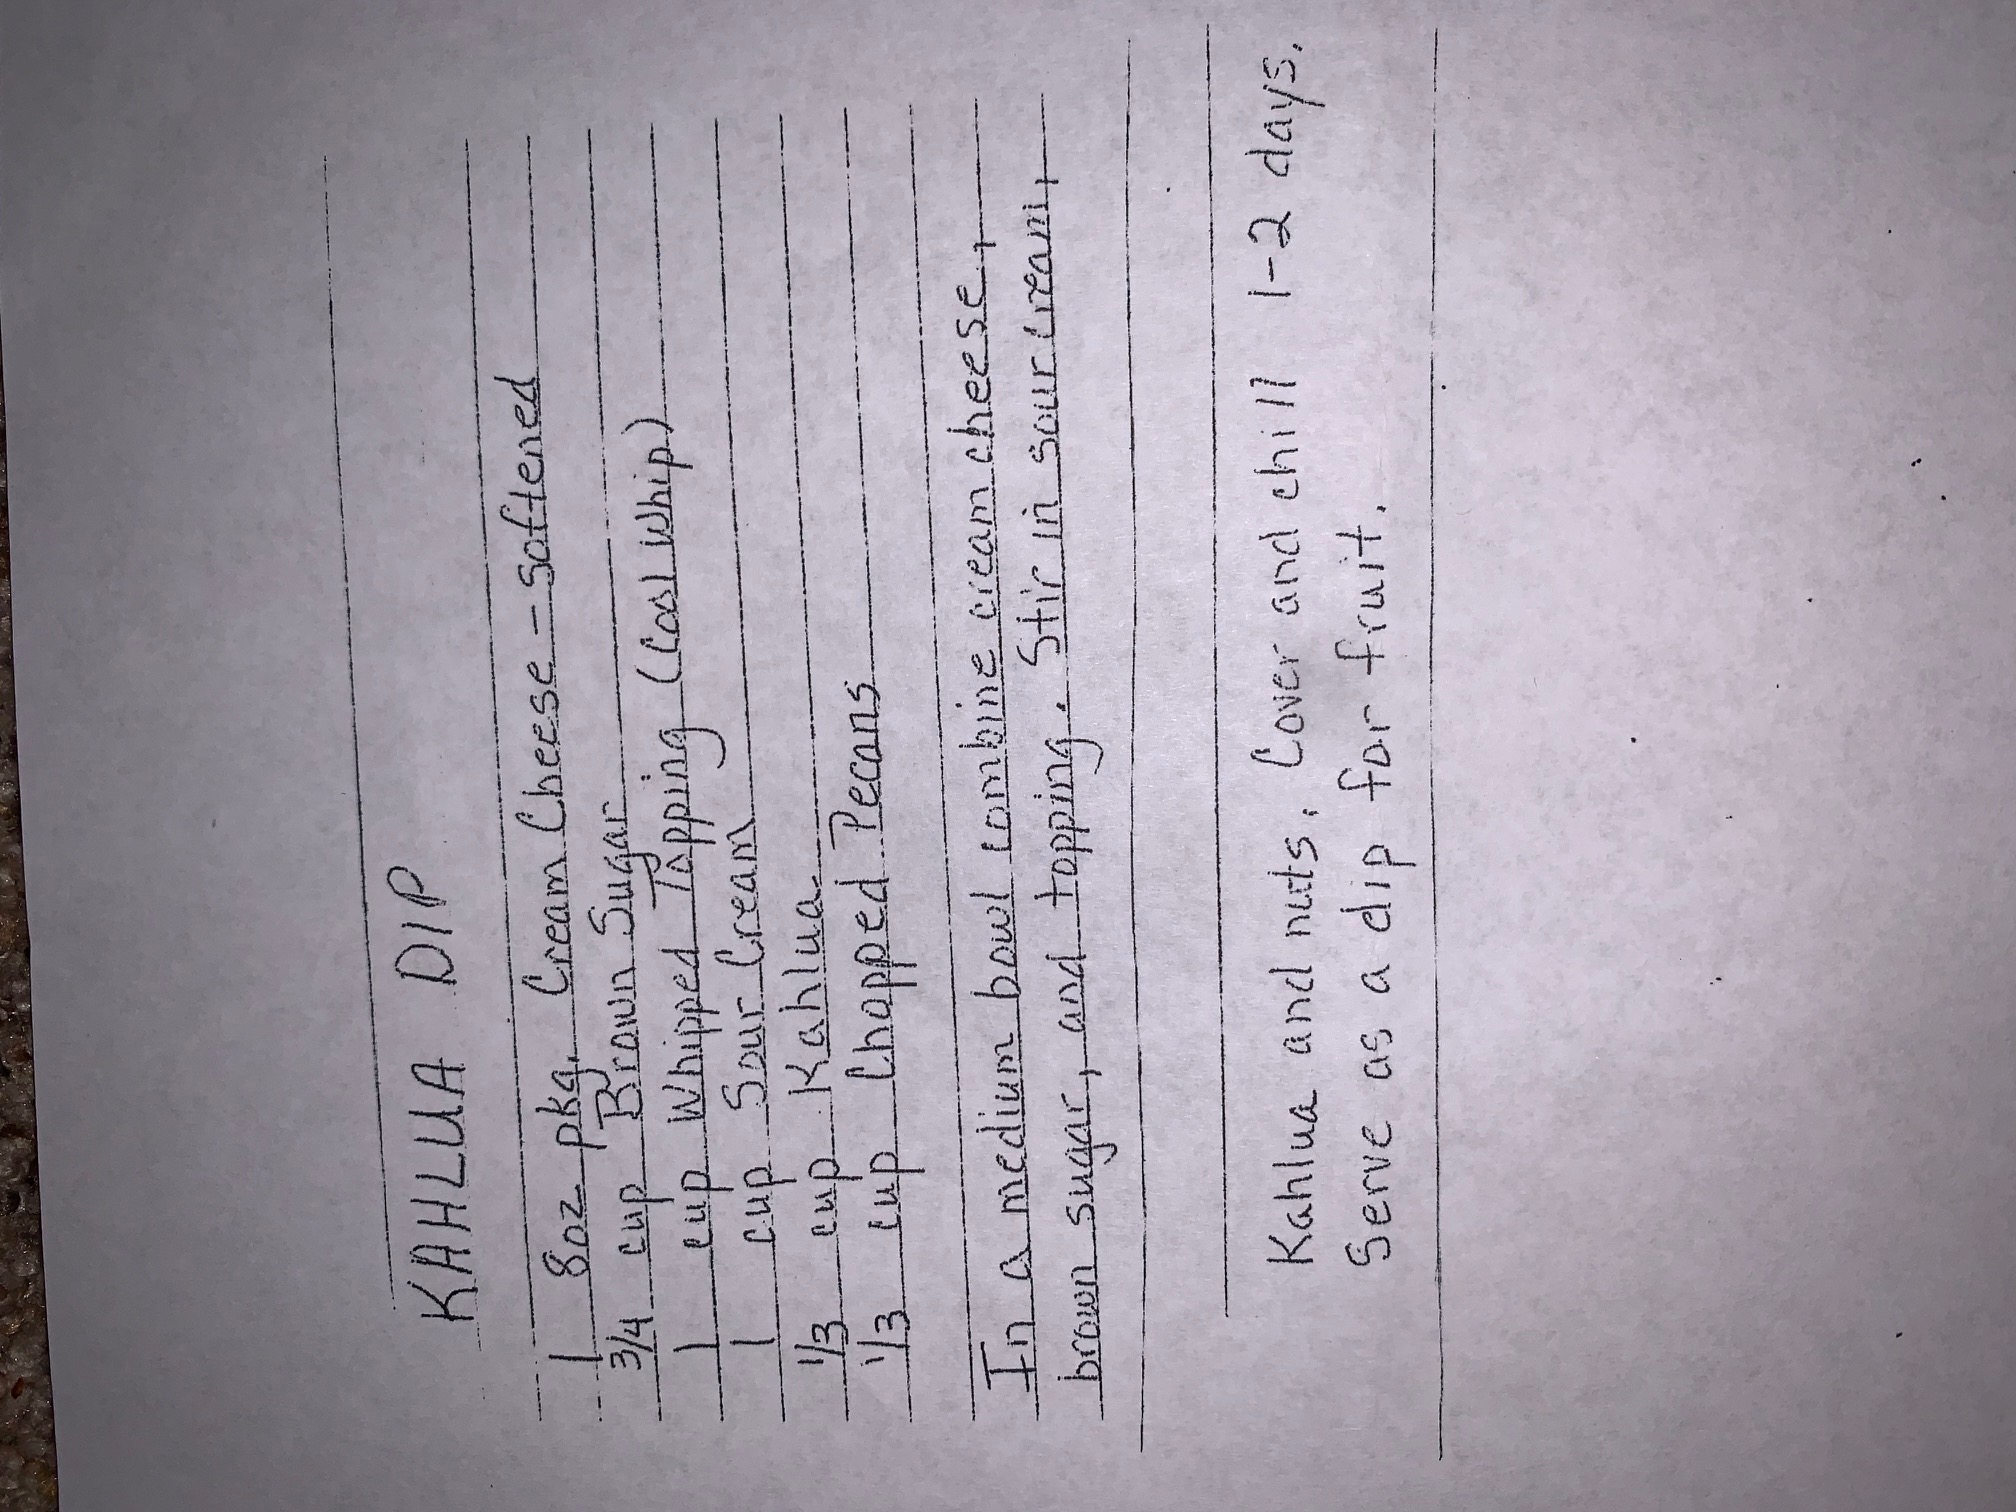 KAHLUA DIP
1 8oz pkg. Cream Cheese - softened
3/4 cup Brown Sugar
1 cup Whipped Topping (Cool Whip)
1 cup Sour Cream
1/3 cup Kahlua
1/3 cup Chopped Pecans
In a medium bowl combine cream cheese,
brown sugar, and topping. Stir in sour cream,
Kahlua and nuts. Cover and chill 1-2 days.
Serve as a dip for fruit.